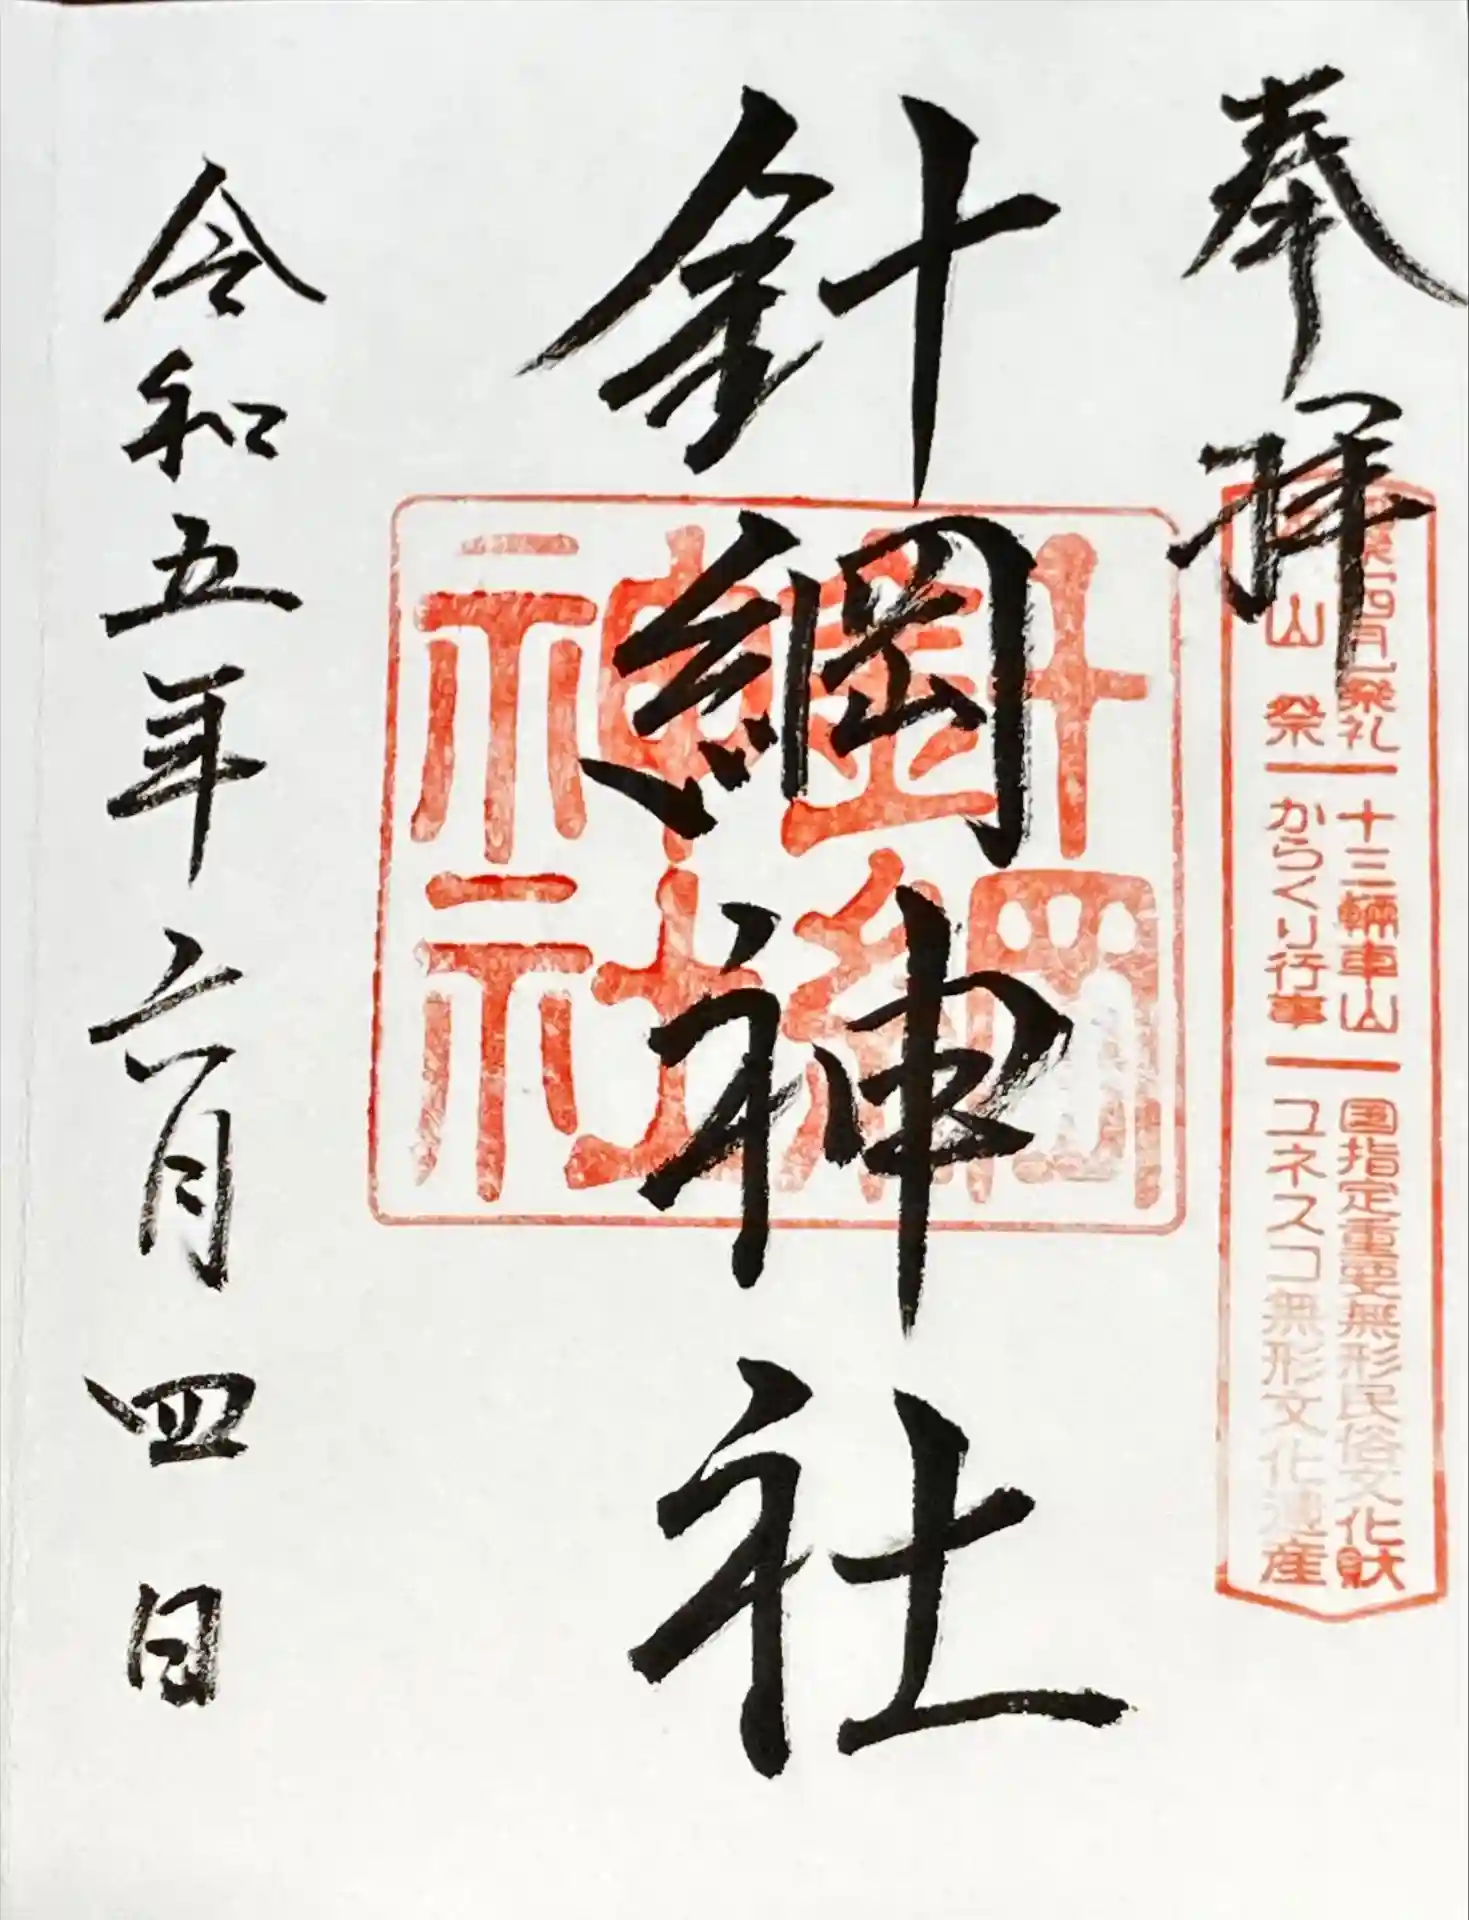 奉拝
山 祭 からくり行事 ユネスコ無形文化遺産
四月 祭礼 十三輛車山 国指定重要無形民俗文化財
針綱神社
針綱神社
令和五年六月四日